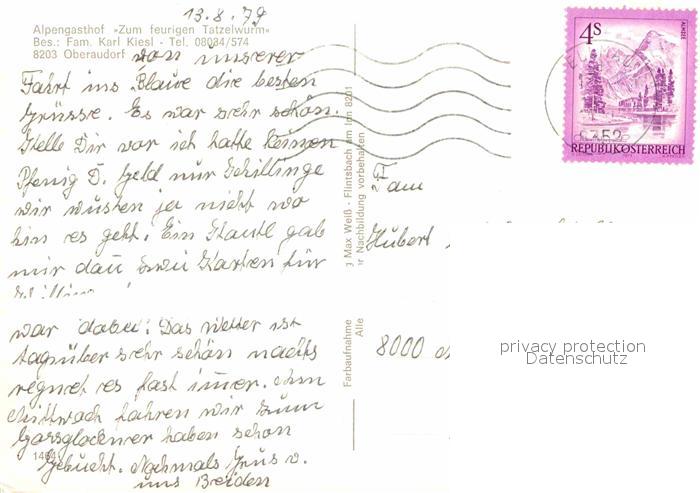 13.8.79
Alpengasthof »Zum feurigen Tatzelwurm«
Bes.: Fam. Karl Kiesl - Tel. 08084/574
8203 Oberaudorf
von unserer
Fahrt ins Blaue die besten
Grüsse. Es war sehr schön.
Stelle Dir vor ich hatte keinen
Pfenig D. Geld nur Schillinge
wir wusten ja nicht wo
hin es geht! Ein gab
mir dan zwei Karten für
war dabei! Das Wetter ist
tagsüber sehr schön nachts
regnet es fast imer. Am
Mittwoch fahren wir zum
Grossglockner haben schon
Gebucht. Nochmals Grus v.
uns Beiden
Farbaufnahme
Max Weiß - Flintsbach am Inn 8201
Alle
Nachbildung vorbehalten
Fam
Hubert
8000
4s
ALMSEE
REPUBLIK ÖSTERREICH
privacy protection
Datenschutz